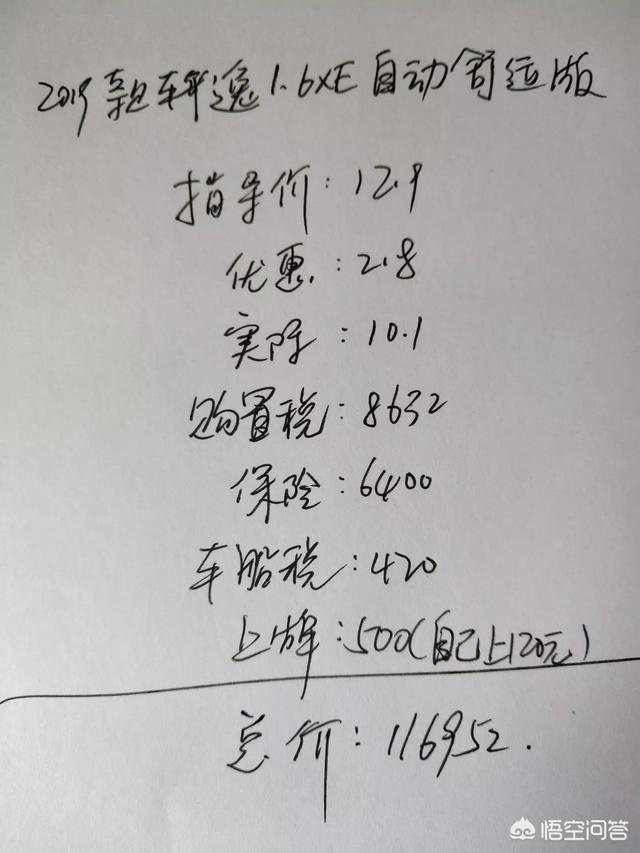 2019款轩逸1.6XE自动舒适版
指导价:12.9
优惠:2.8
实际:10.1
购置税:8632
保险:6400
车船税:420
上牌:500(自己上120元)
总价:116952.
悟空问答